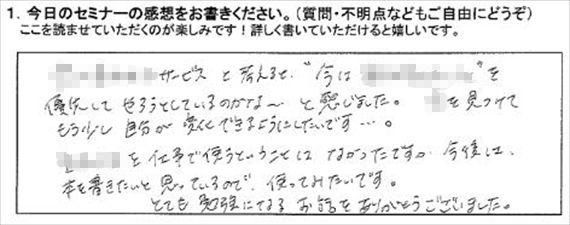 1. 今日のセミナーの感想をお書きください。(質問・不明点などもご自由にどうぞ)
ここを読ませていただくのが楽しみです！詳しく書いていただけると嬉しいです。
サービス と考えると、"今は"を
優先してやろうとしているのかな〜と感じました。を見つけて
もう少し自分が変化できるようにしたいです…。
を仕事で使うということはなかったですが、今後は、
本を書きたいと思っているので、使ってみたいです。
とても勉強になるお話をありがとうございました。